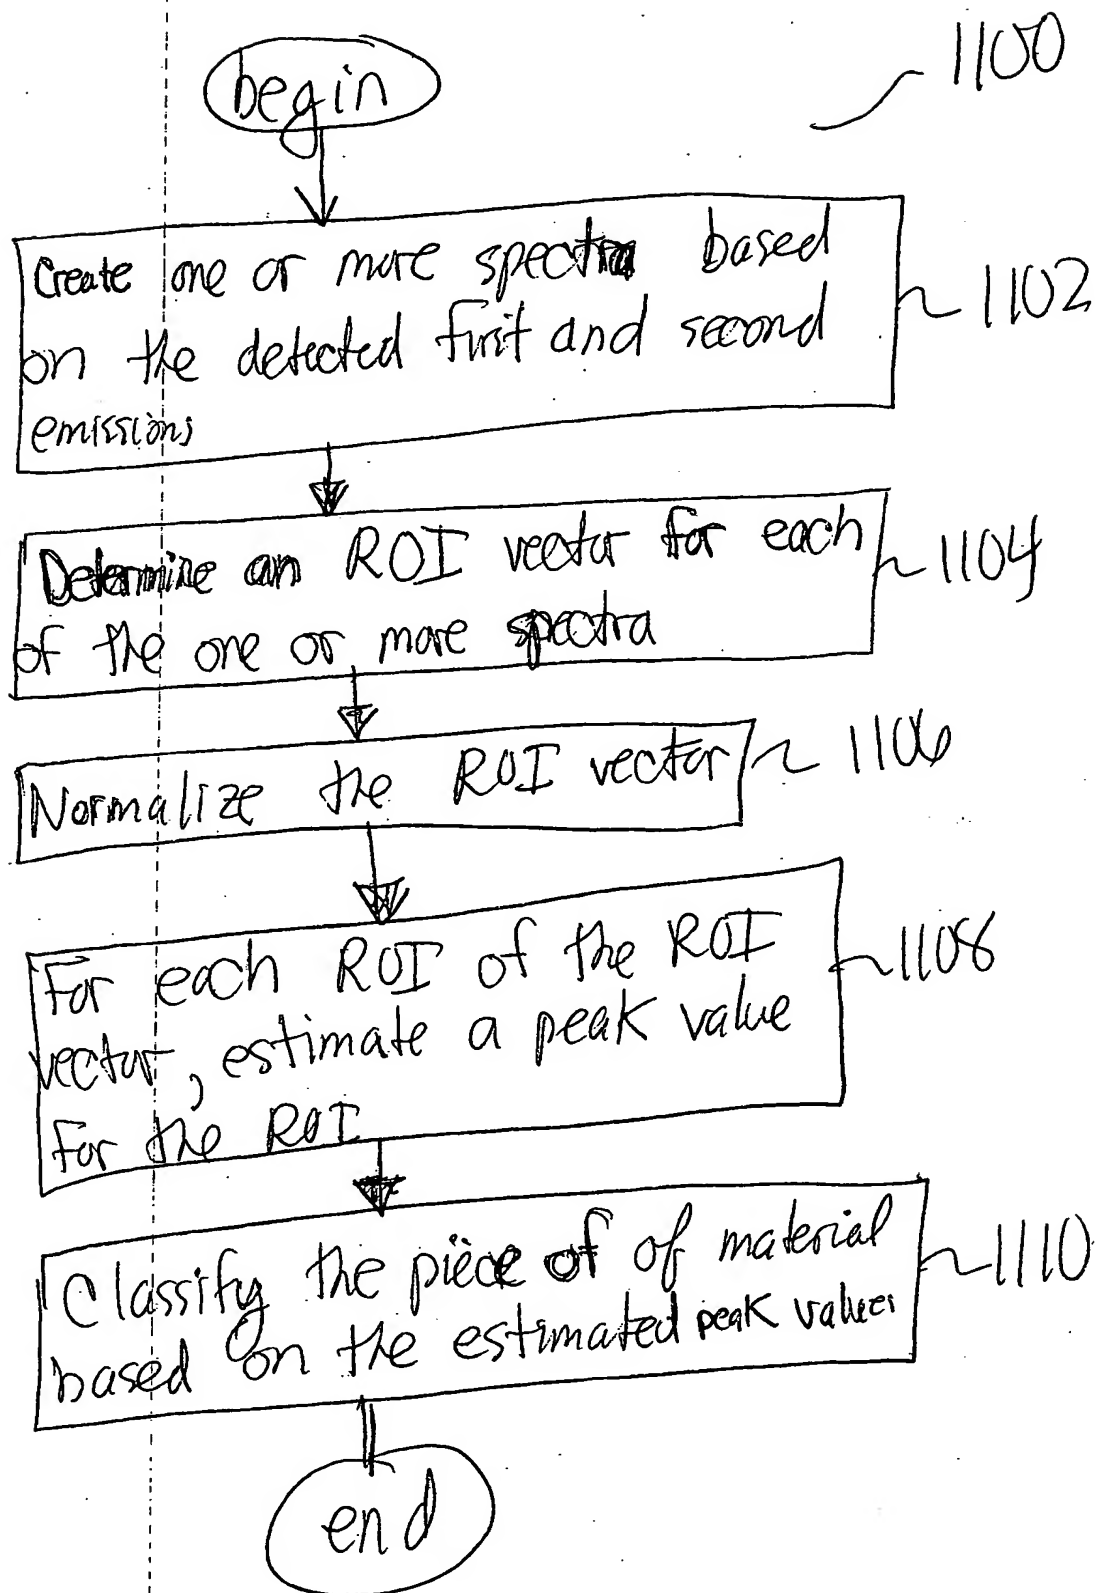 begin
1100
Create one or more spectra based
on the detected first and second
emissions
1102
Determine an ROI vector for each
of the one or more spectra
1104
Normalize the ROI vector
1106
For each ROI of the ROI
vector, estimate a peak value
For the ROI
1108
Classify the piece of of material
based on the estimated peak values
1110
end